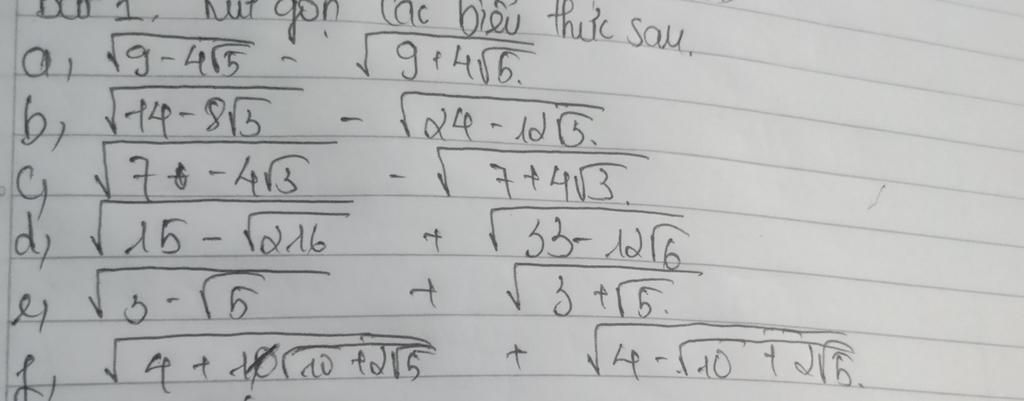 Bài 1. Rút gọn các biểu thức sau.
a, √(9 - 4√5) - √(9 + 4√5).
b, √(14 - 8√3) - √(24 - 12√3).
c, √(7 - 4√3) - √(7 + 4√3).
d, √(15 - √216) + √(33 - 12√6)
e, √(3 - √5) + √(3 + √5).
f, √(4 + √(10 + 2√5)) + √(4 - √(10 + 2√5)).